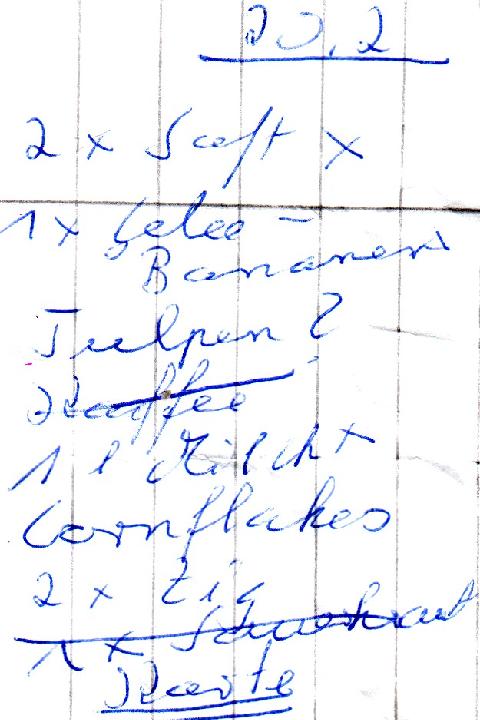 20.2
2 x Saft x
1 x Gelee-
Bananen
Tulpen?
Kaffee
1 l Milch x
Cornflakes
2 x Zig
1 x Sauerkraut
Karte